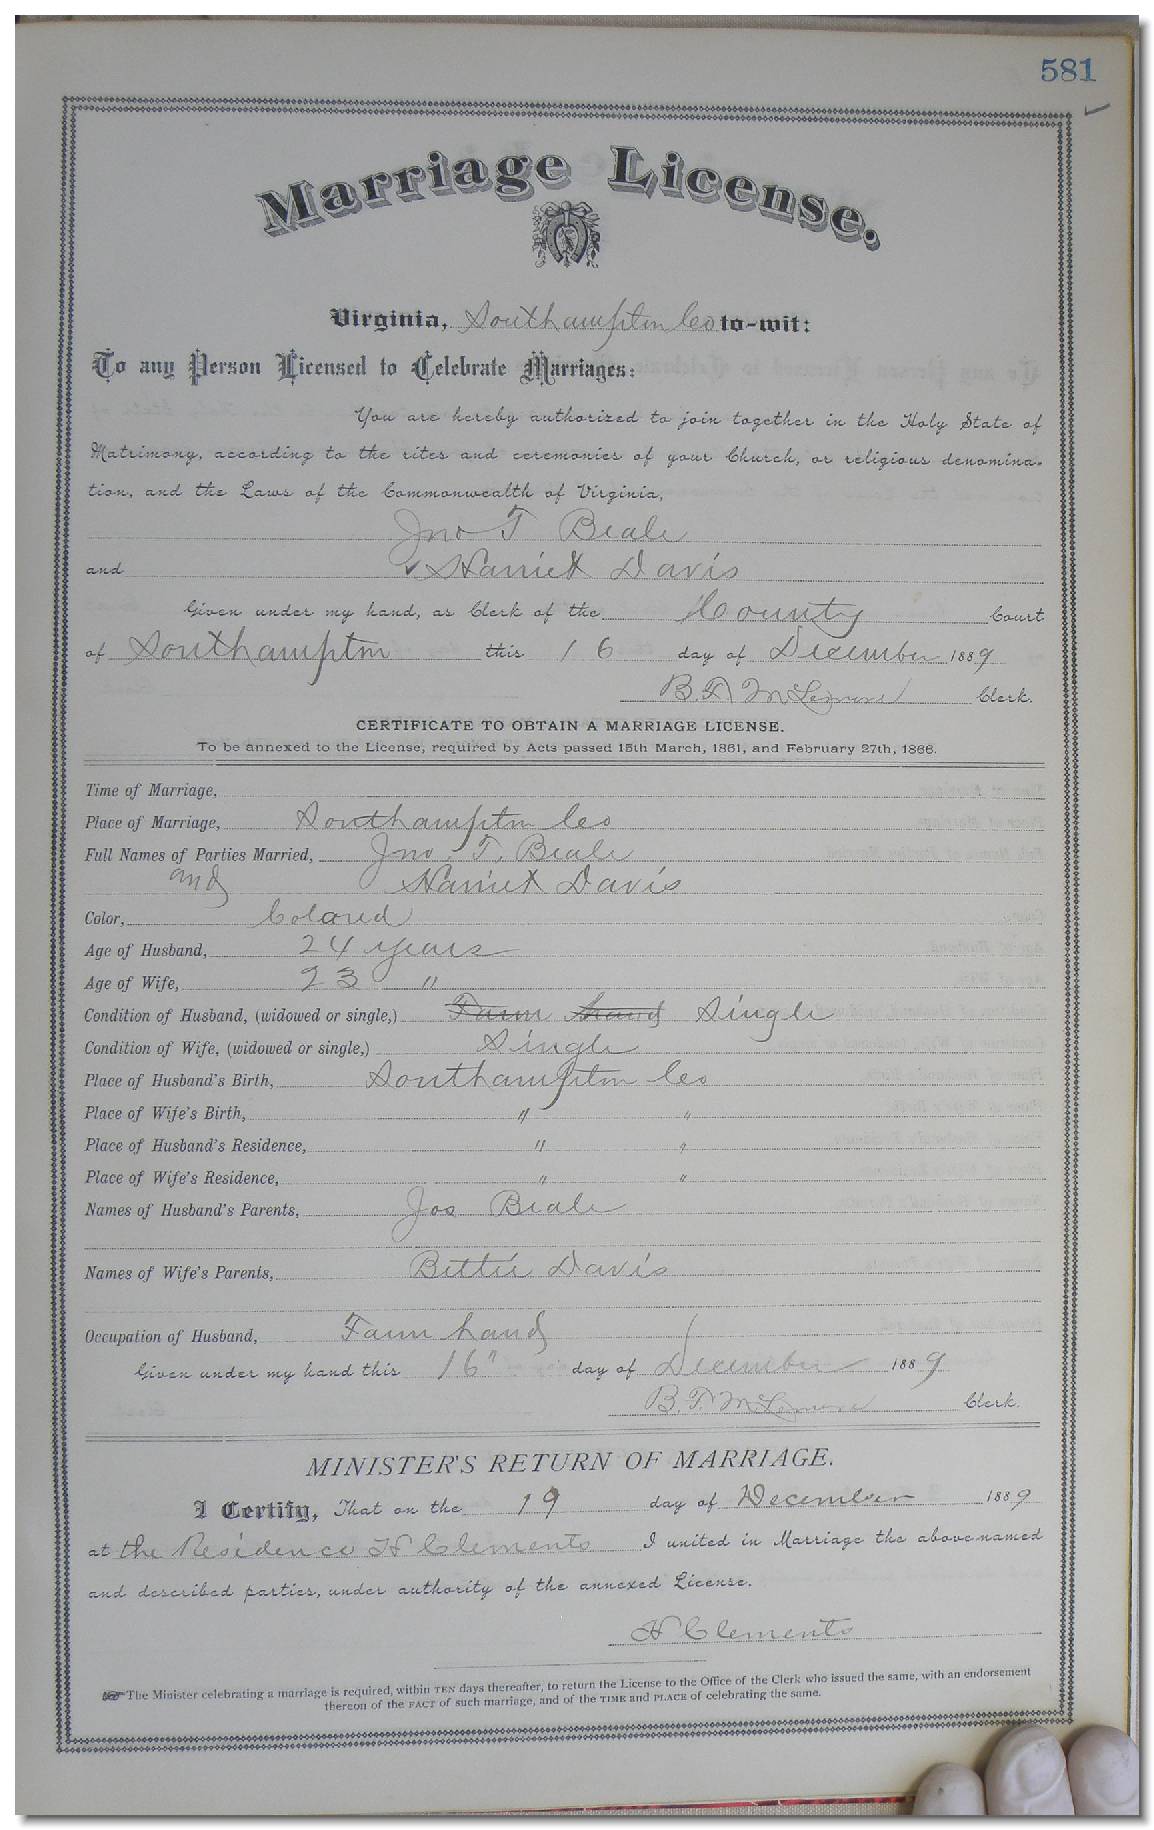 581
Marriage License.
Virginia, Southampton Co to-wit:
To any Person Licensed to Celebrate Marriages:
You are hereby authorized to join together in the Holy State of
Matrimony, according to the rites and ceremonies of your Church, or religious denomina-
tion, and the Laws of the Commonwealth of Virginia,
Jno T Beale
and Harriet Davis
Given under my hand, as Clerk of the County Court
of Southampton this 16 day of December 1889
B. F. McLemore Clerk.
CERTIFICATE TO OBTAIN A MARRIAGE LICENSE.
To be annexed to the License, required by Acts passed 15th March, 1861, and February 27th, 1866.
Time of Marriage,
Place of Marriage, Southampton Co
Full Names of Parties Married, Jno. T. Beale
and Harriet Davis
Color, Colored
Age of Husband, 24 years
Age of Wife, 23 "
Condition of Husband, (widowed or single,) Farm hand Single
Condition of Wife, (widowed or single,) Single
Place of Husband's Birth, Southampton Co
Place of Wife's Birth, " "
Place of Husband's Residence, " "
Place of Wife's Residence, " "
Names of Husband's Parents, Jos Beale
Names of Wife's Parents, Bettie Davis
Occupation of Husband, Farm hand
Given under my hand this 16" day of December 1889
B. F. McLemore Clerk.
MINISTER'S RETURN OF MARRIAGE.
I Certify, That on the 19 day of December 1889
at the Residence H Clements I united in Marriage the above-named
and described parties, under authority of the annexed License.
H Clements
The Minister celebrating a marriage is required, within TEN days thereafter, to return the License to the Office of the Clerk who issued the same, with an endorsement
thereon of the FACT of such marriage, and of the TIME and PLACE of celebrating the same.